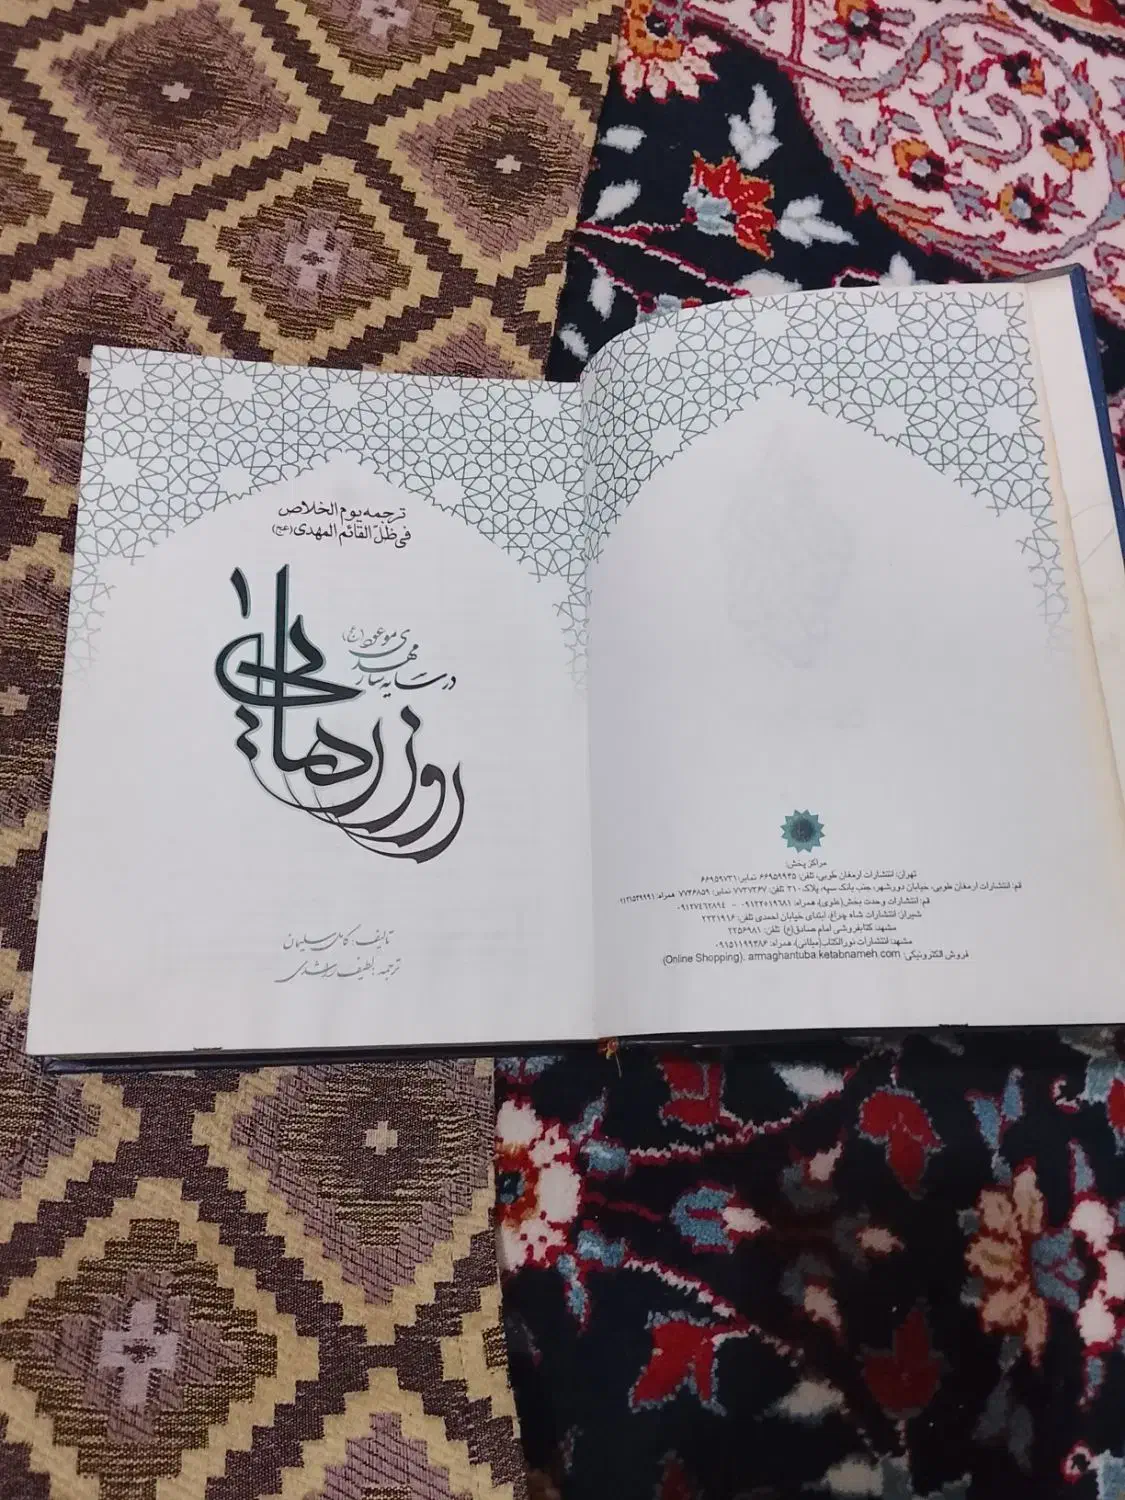 مراکز پخش:
تهران: انتشارات ارمغان طوبی، تلفن: ۶۶۹۵۹۹۳۵ نمابر: ۶۶۹۵۹۷۳۱
قم: انتشارات ارمغان طوبی، خیابان دورشهر، جنب بانک سپه، پلاک ۳۱۰ تلفن: ۷۷۳۷۳۶۷ نمابر: ۷۷۴۶۸۵۹ همراه:
قم: انتشارات وحدت بخش(علوی)، همراه: ۰۹۱۲۲۵۱۹۶۸۱ - ۰۹۱۲۷۴۶۲۸۹۴
شیراز: انتشارات شاه چراغ، ابتدای خیابان احمدی تلفن: ۲۲۳۱۹۱۶
مشهد: کتابفروشی امام صادق(ع) تلفن: ۲۲۵۶۹۸۱
مشهد: انتشارات نورالکتاب(میلانی)، همراه: ۰۹۱۵۱۱۹۹۳۸۶
فروش الکترونیکی: armaghantuba.ketabnameh.com .(Online Shopping)
ترجمه یوم الخلاص
فی ظلّ القائم المهدی(عج)
در سایه سار مهدی موعود(عج)
روز رهایی
تالیف: کامل سلیمان
ترجمه: لطیف راشدی